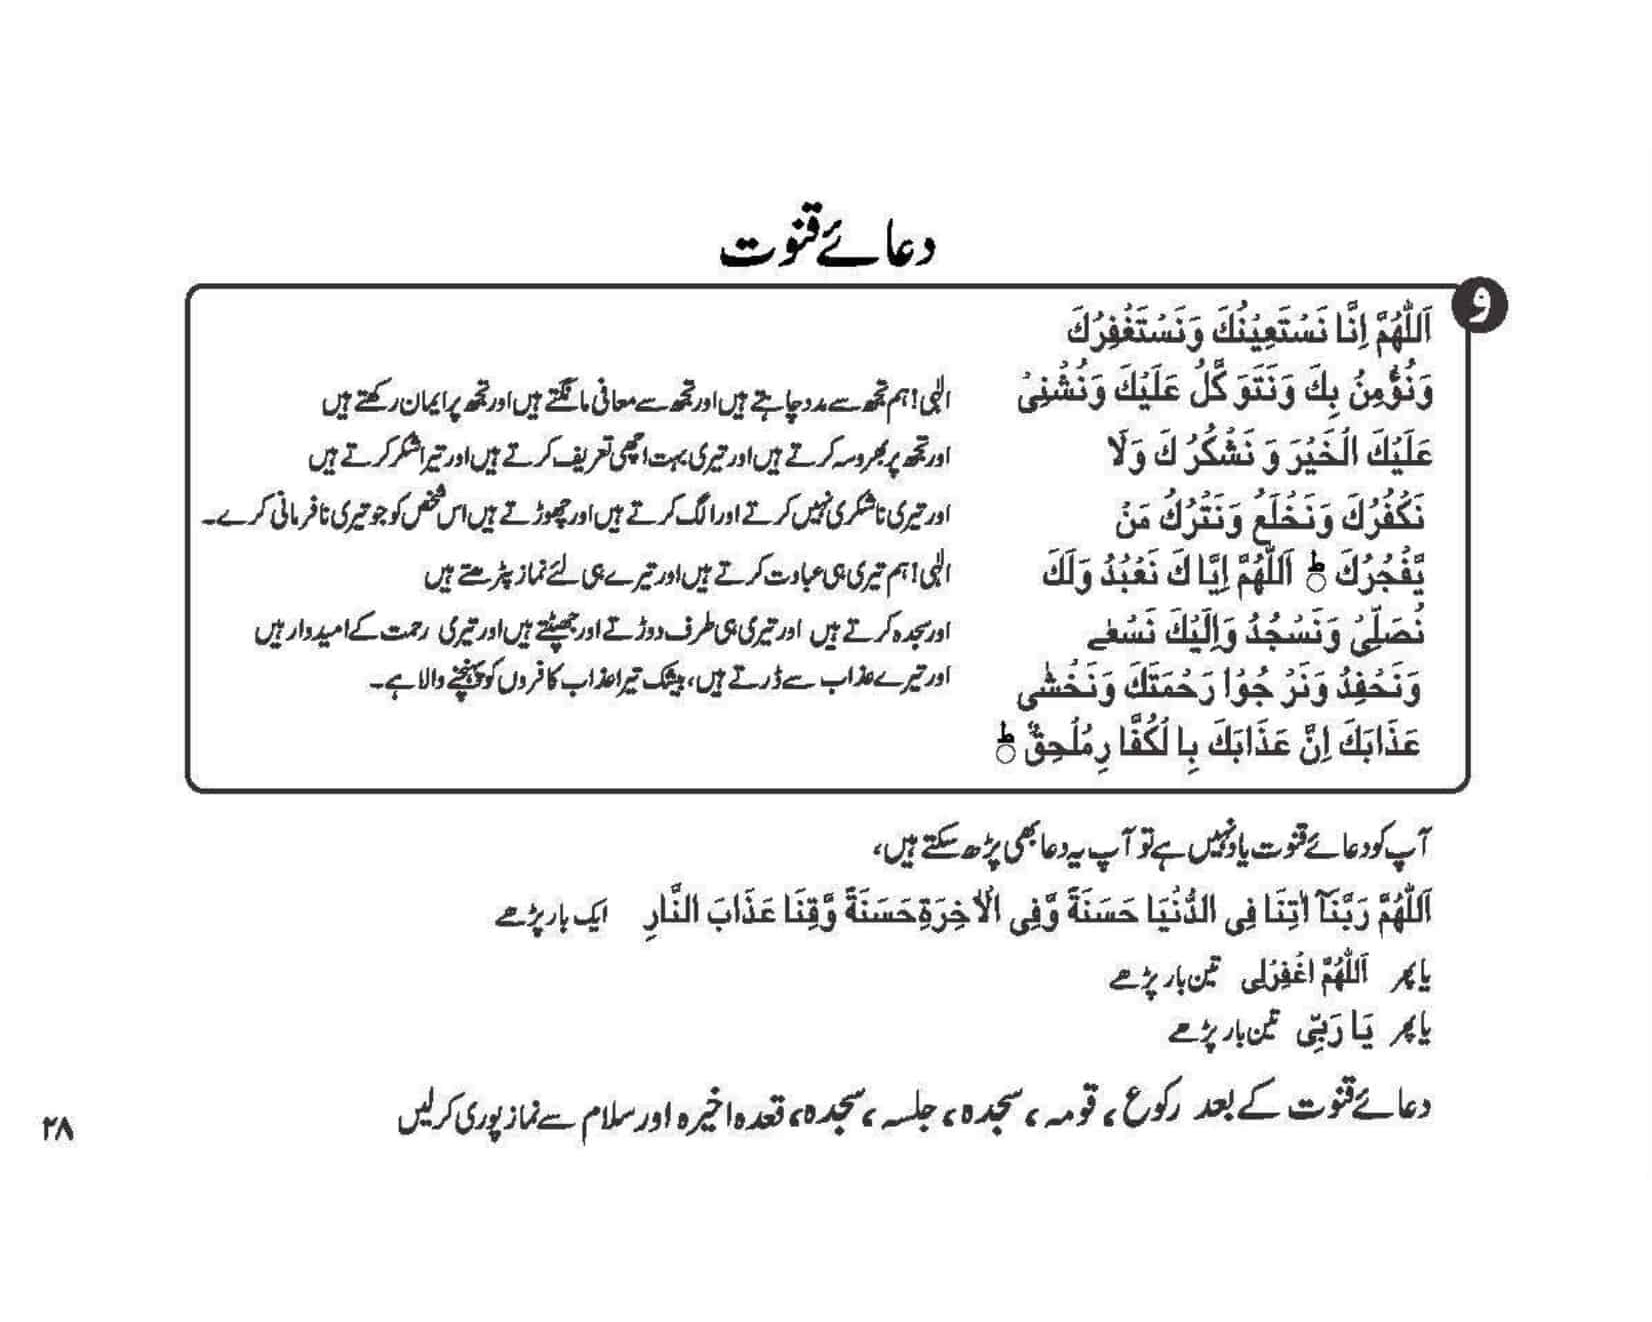 دعائے قنوت
و
اَللّٰهُمَّ اِنَّا نَسْتَعِيْنُكَ وَنَسْتَغْفِرُكَ
وَنُؤْمِنُ بِكَ وَنَتَوَ كَّلُ عَلَيْكَ وَنُثْنِيْ
عَلَيْكَ الْخَيْرَ وَ نَشْكُرُ كَ وَلَا
نَكْفُرُكَ وَنَخْلَعُ وَنَتْرُكُ مَنْ
يَّفْجُرُكَ ؕ اَللّٰهُمَّ اِيَّا كَ نَعْبُدُ وَلَكَ
نُصَلِّيْ وَنَسْجُدُ وَاِلَيْكَ نَسْعٰے
وَنَحْفِدُ وَنَرْ جُوْا رَحْمَتَكَ وَنَخْشٰى
عَذَابَكَ اِنَّ عَذَابَكَ بِا لْكُفَّا رِمُلْحِقٌ ؕ
الٰہی! ہم تجھ سے مدد چاہتے ہیں اور تجھ سے معافی مانگتے ہیں اور تجھ پر ایمان رکھتے ہیں
اور تجھ پر بھروسہ کرتے ہیں اور تیری بہت اچھی تعریف کرتے ہیں اور تیرا شکر کرتے ہیں
اور تیری ناشکری نہیں کرتے اور الگ کرتے ہیں اور چھوڑتے ہیں اس شخص کو جو تیری نافرمانی کرے۔
الٰہی! ہم تیری ہی عبادت کرتے ہیں اور تیرے ہی لئے نماز پڑھتے ہیں
اور سجدہ کرتے ہیں اور تیری ہی طرف دوڑتے اور جھپٹتے ہیں اور تیری رحمت کے امیدوار ہیں
اور تیرے عذاب سے ڈرتے ہیں، بیشک تیرا عذاب کافروں کو پہنچنے والا ہے۔
آپ کو دعائے قنوت یاد نہیں ہے تو آپ یہ دعا بھی پڑھ سکتے ہیں،
اَللّٰهُمَّ رَبَّنَآ اٰتِنَا فِي الدُّنْيَا حَسَنَةً وَّفِي الْاٰخِرَةِ حَسَنَةً وَّقِنَا عَذَابَ النَّارِ ایک بار پڑھے
یا پھر اَللّٰهُمَّ اغْفِرْلِی تین بار پڑھے
یا پھر يَا رَبِّی تین بار پڑھے
دعائے قنوت کے بعد رکوع، قومہ، سجدہ، جلسہ، سجدہ، قعدہ اخیرہ اور سلام سے نماز پوری کرلیں
۲۸